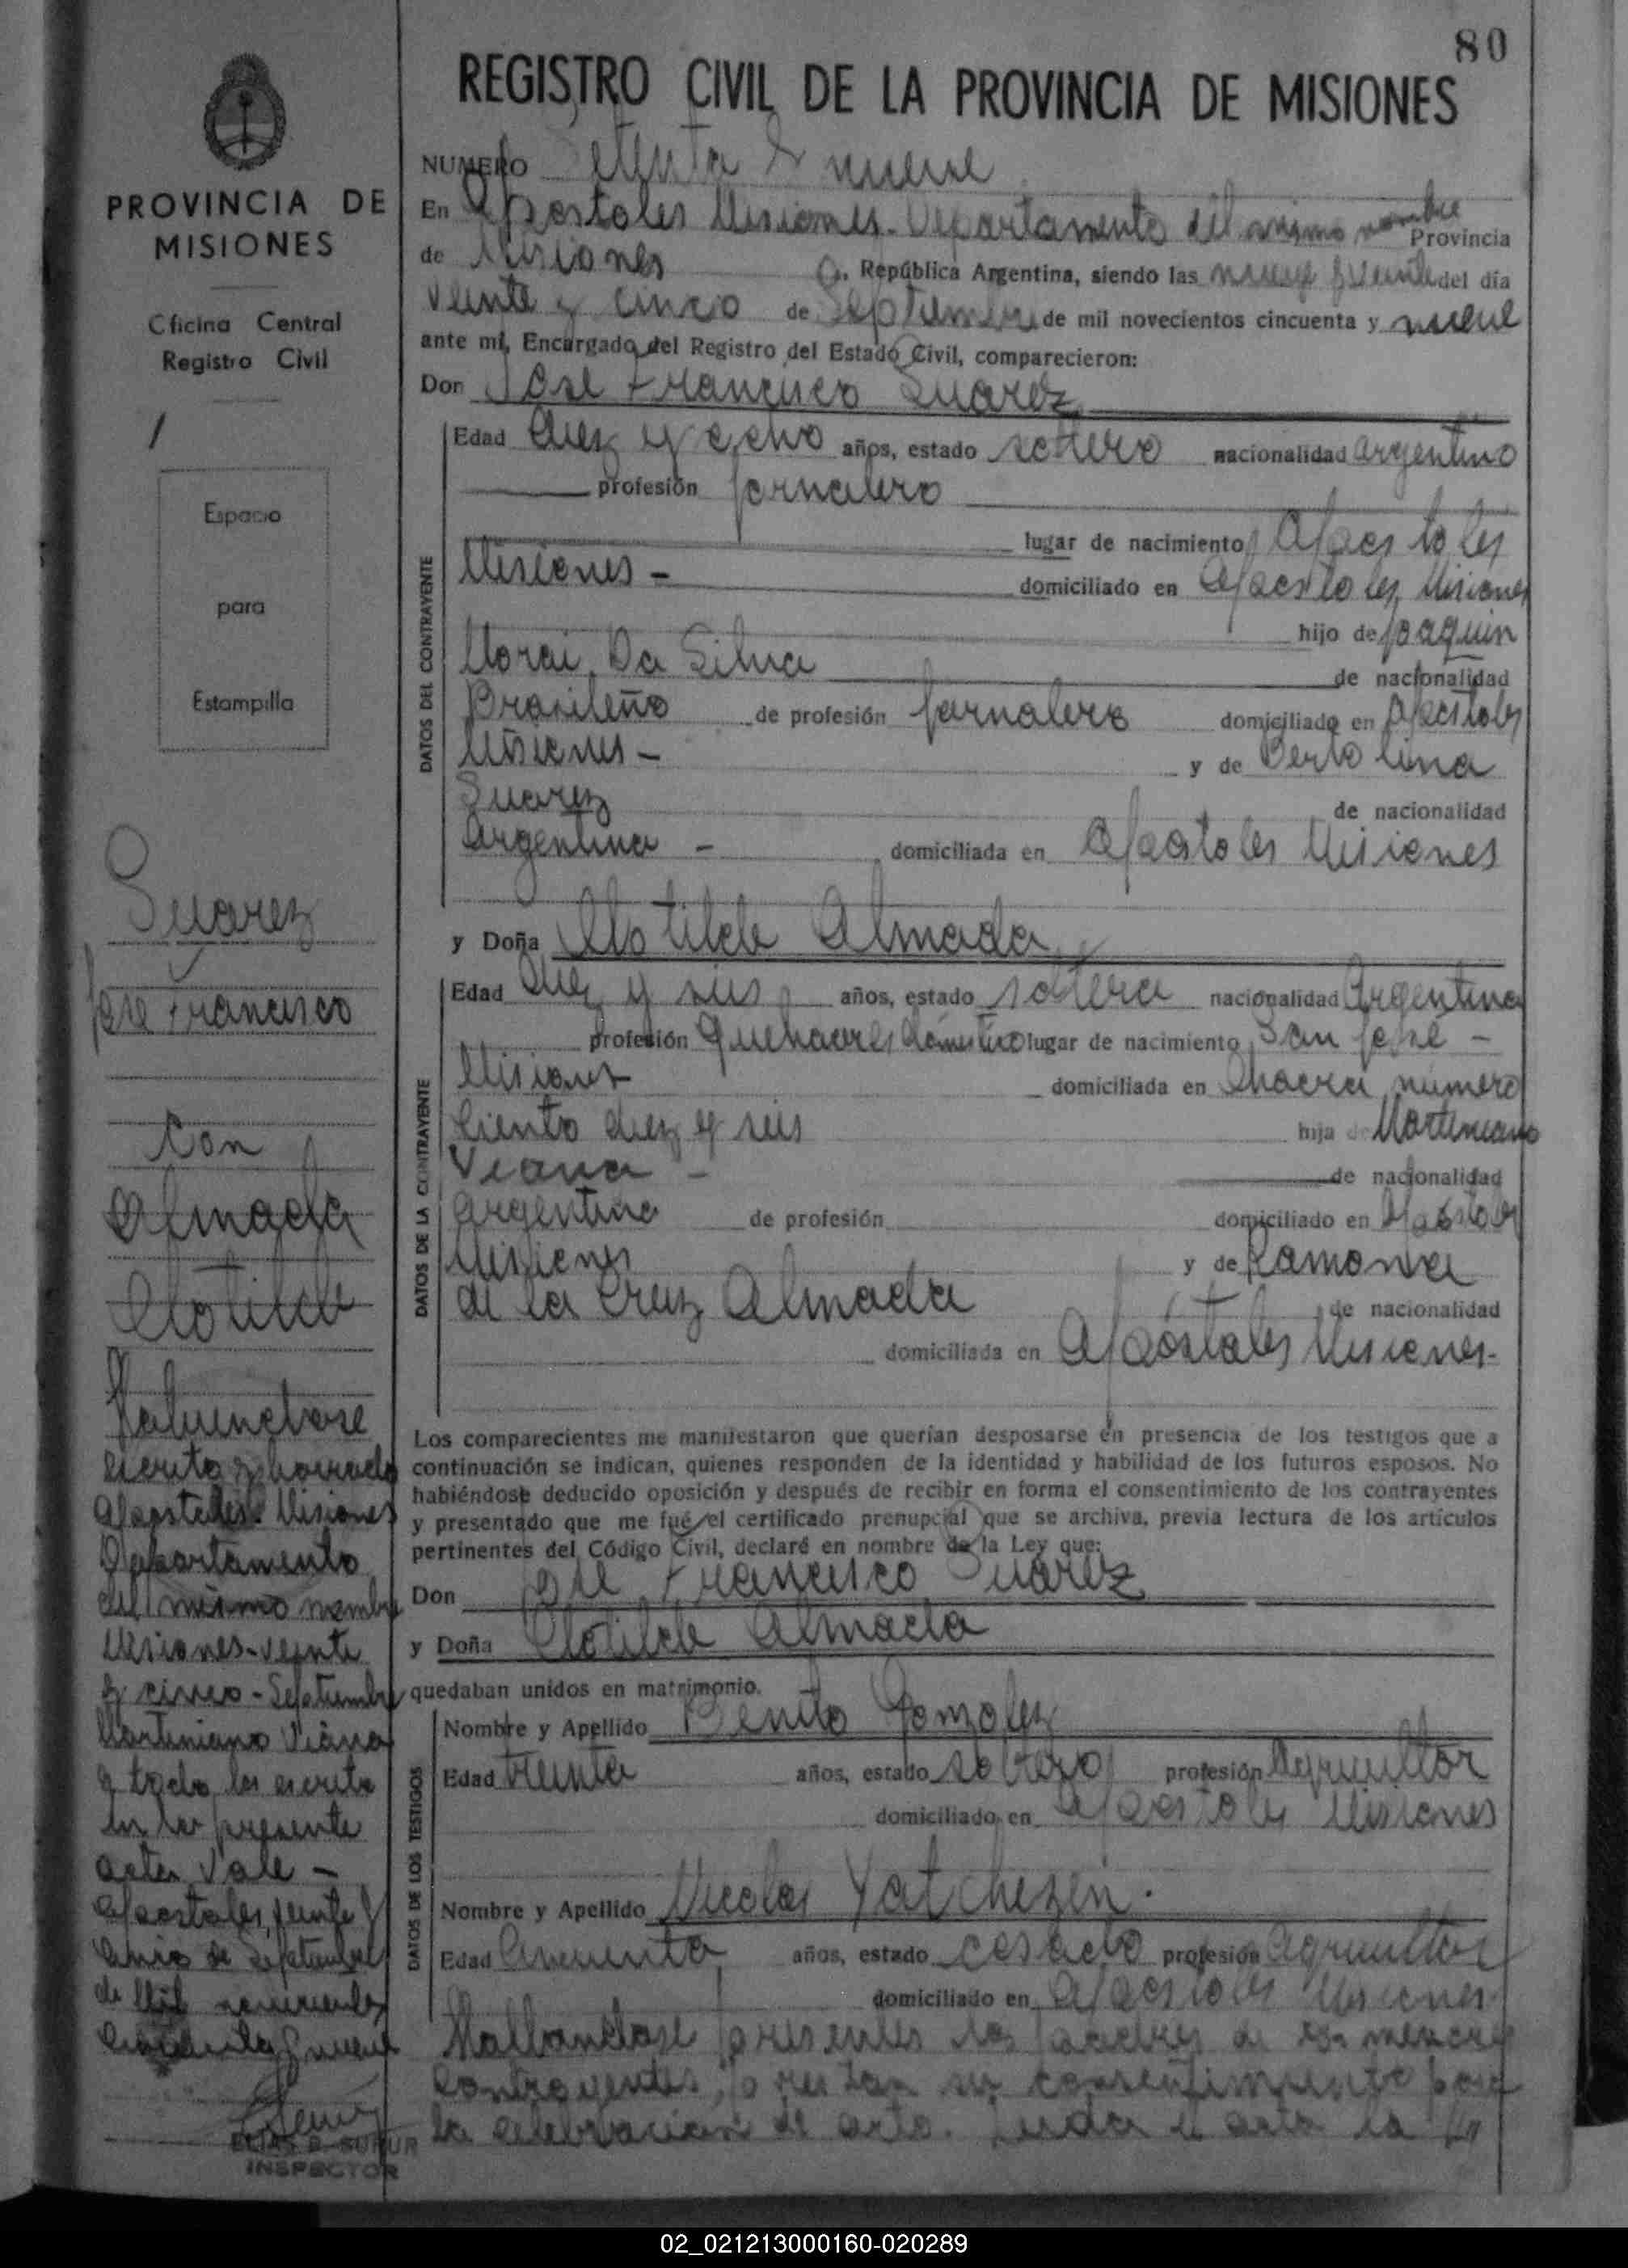 80
REGISTRO CIVIL DE LA PROVINCIA DE MISIONES
PROVINCIA DE
MISIONES
Oficina Central
Registro Civil
Espacio
para
Estampilla
Suarez
José Francisco
Con
Almada
Clotilde
escrito y borrado
Apostoles Misiones
Departamento
del mismo nombre
Misiones-veinte
y cinco-Septiembre
Martiniano Viana
y todo lo escrito
en la presente
acta Vale -
Apostoles, veinte y
cinco de Septiembre
de Mil novecientos
cincuenta y nueve
ELIAS R. SUFUR
INSPECTOR
NUMERO Setenta y nueve
En Apostoles Misiones. Departamento del mismo nombre Provincia
de Misiones República Argentina, siendo las nueve y veinte del día
veinte y cinco de Septiembre de mil novecientos cincuenta y nueve
ante mí, Encargado del Registro del Estado Civil, comparecieron:
Don José Francisco Suarez
DATOS DEL CONTRAYENTE
Edad diez y ocho años, estado soltero nacionalidad argentino
profesión jornalero
lugar de nacimiento Apostoles
Misiones - domiciliado en Apostoles Misiones
hijo de Joaquin
Da Silva de nacionalidad
Brasileño de profesión jornalero domiciliado en Apostoles
Misiones - y de Bertolina
Suarez de nacionalidad
Argentina - domiciliada en Apostoles Misiones
y Doña Clotilde Almada
DATOS DE LA CONTRAYENTE
Edad diez y seis años, estado soltera nacionalidad Argentina
profesión quehaceres domestico lugar de nacimiento San José -
Misiones domiciliada en Chacra número
Ciento diez y seis hija de Martiniano
Viana - de nacionalidad
Argentino de profesión domiciliado en Apostoles
Misiones y de Ramona
de la Cruz Almada de nacionalidad
domiciliada en Apóstoles Misiones-
Los comparecientes me manifestaron que querían desposarse en presencia de los testigos que a
continuación se indican, quienes responden de la identidad y habilidad de los futuros esposos. No
habiéndose deducido oposición y después de recibir en forma el consentimiento de los contrayentes
y presentado que me fué el certificado prenupcial que se archiva, previa lectura de los artículos
pertinentes del Código Civil, declaré en nombre de la Ley que:
Don José Francisco Suárez
y Doña Clotilde Almada
quedaban unidos en matrimonio.
DATOS DE LOS TESTIGOS
Nombre y Apellido Benito Gonzalez
Edad treinta años, estado soltero profesión Agricultor
domiciliado en Apostoles Misiones
Nombre y Apellido Nicolas
Edad Cincuenta años, estado casado profesión agricultor
domiciliado en Apostoles Misiones
Hallandose presentes los padres de los menores
contrayentes, prestan su consentimiento para
la celebracion del acto. Leida el acta la
02_021213000160-020289